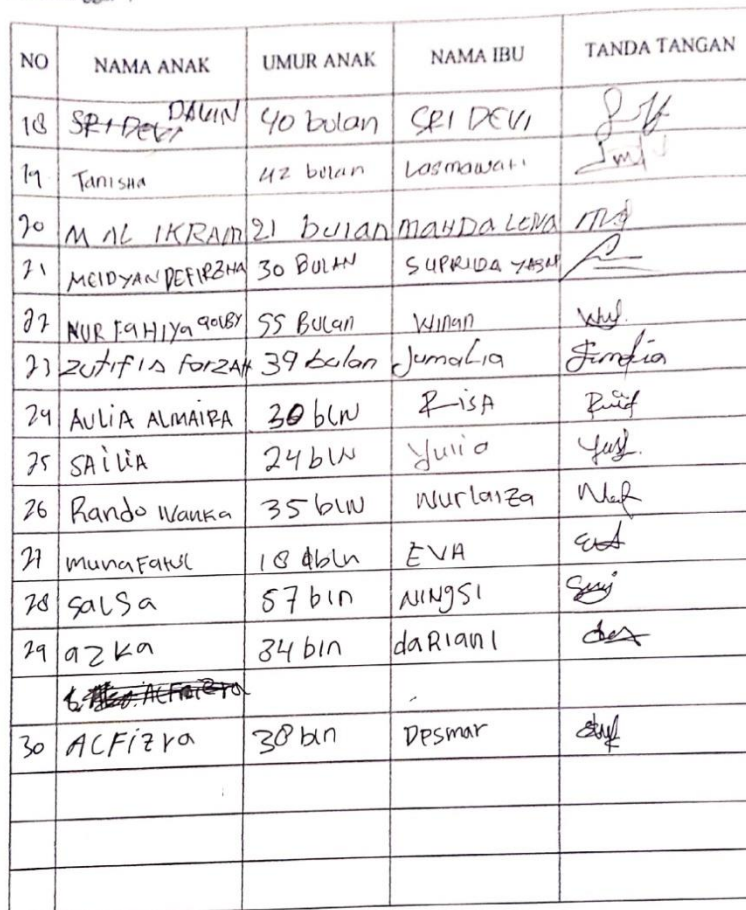 NO NAMA ANAK UMUR ANAK NAMA IBU TANDA TANGAN
18 SRI DEVI DALVIN 40 bulan SRI DEVI
19 Tanisha 42 bulan Losmawati
20 M AL IKRAM 21 bulan MAHDALENA
21 MEIDYAN DEFIRZHA 30 BULAN SUPRIDA
22 NUR FAHIYA QOLBY 55 Bulan Winan
23 39 bulan Jumalia
24 AULIA ALMAIRA 30 bln RISA
25 SAILIA 24 bln Yulia
26 Rando Wanka 35 bln Nurlaiza
27 munaFatul 18 bln EVA
28 Salsa 57 bln NINGSI
29 azka 34 bln daRIANI
30 ALFizra 38 bln Desmar